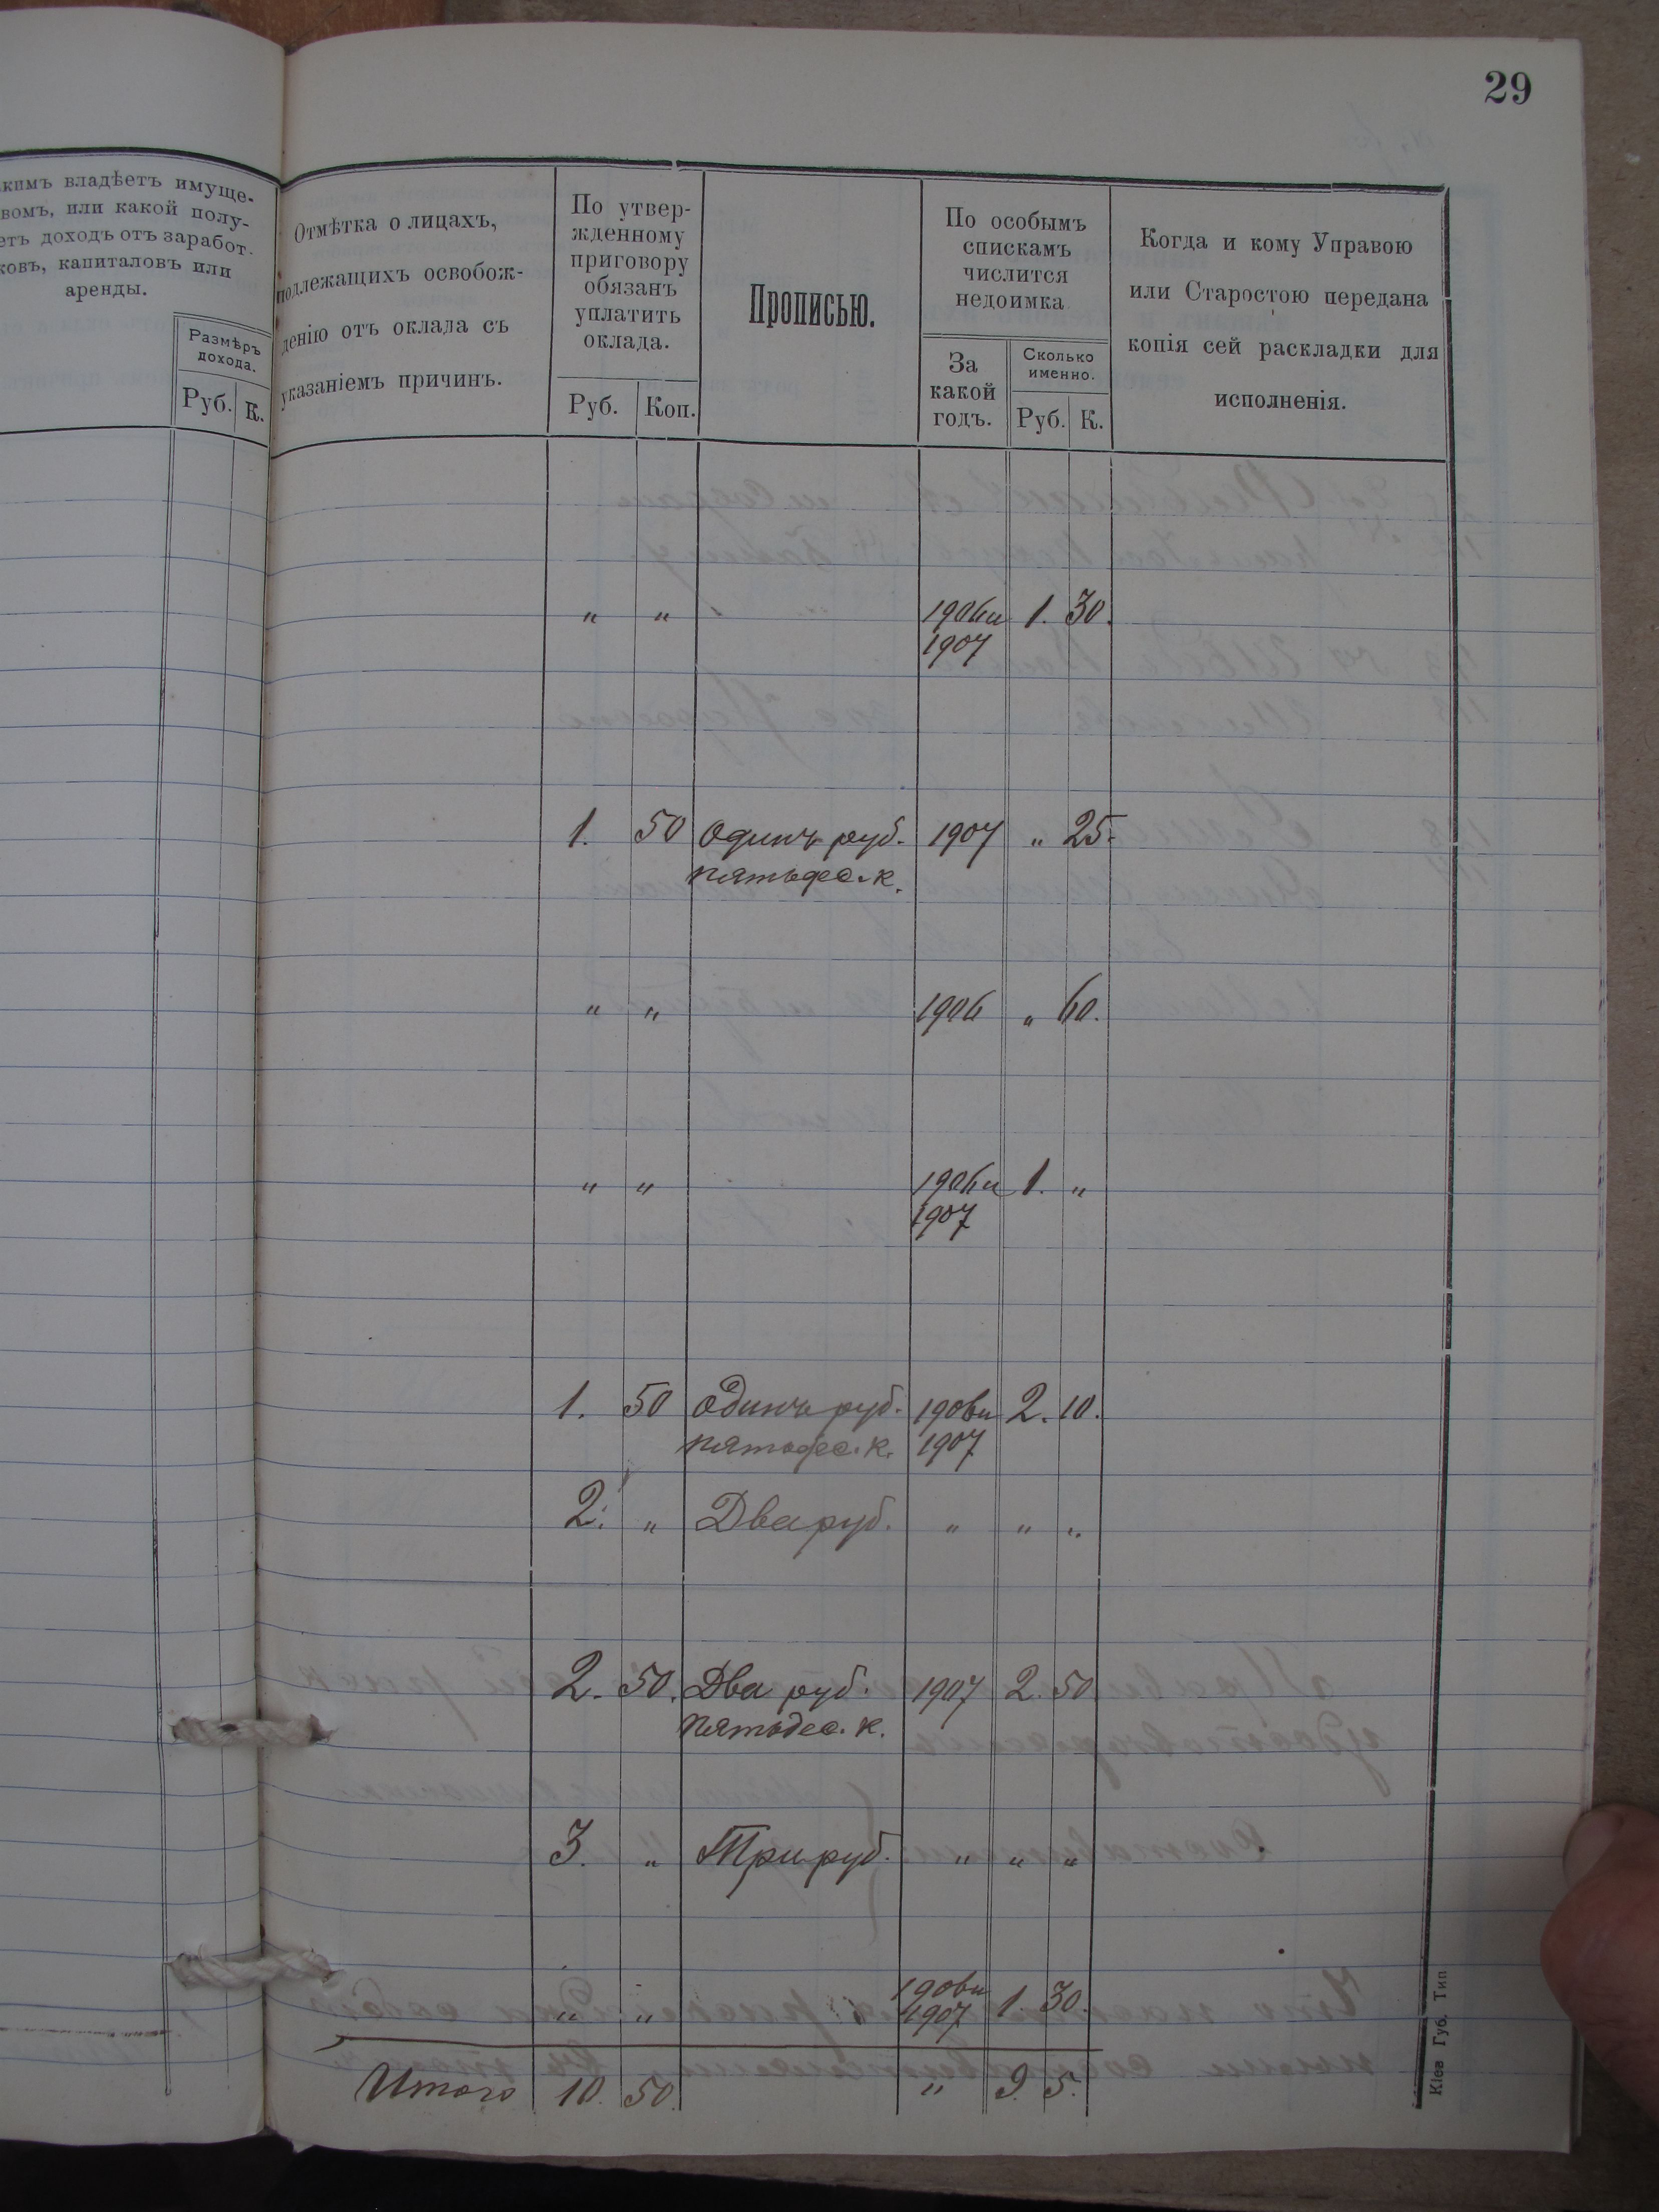 29
кимъ владѣетъ имуще-
вомъ, или какой полу-
етъ доходъ отъ заработ-
ковъ, капиталовъ или
аренды.
Размѣръ
дохода.
Руб. К.
Отмѣтка о лицахъ,
подлежащихъ освобож-
денію отъ оклада съ
указаніемъ причинъ.
По утвер-
жденному
приговору
обязанъ
уплатить
оклада.
Руб. Коп.
Прописью.
По особымъ
спискамъ
числится
недоимка
За
какой
годъ.
Сколько
именно.
Руб. К.
Когда и кому Управою
или Старостою передана
копія сей раскладки для
исполненія.
" " 1906 и 1. 30.
1907
1. 50 Одинъ руб. 1907 " 25.
пятьдес. к.
" " 1906 " 60.
" " 1906 и 1. "
1907
1. 50 Одинъ руб. 1906 и 2. 10.
пятьдес. к. 1907
2. " Два руб. " " "
2. 50. Два руб. 1907 2. 50
пятьдес. к.
3. " Три руб. " " "
1906 и
" " 1907 1. 30.
Итого 10. 50. " 9. 5.
Кіев Губ. Тип